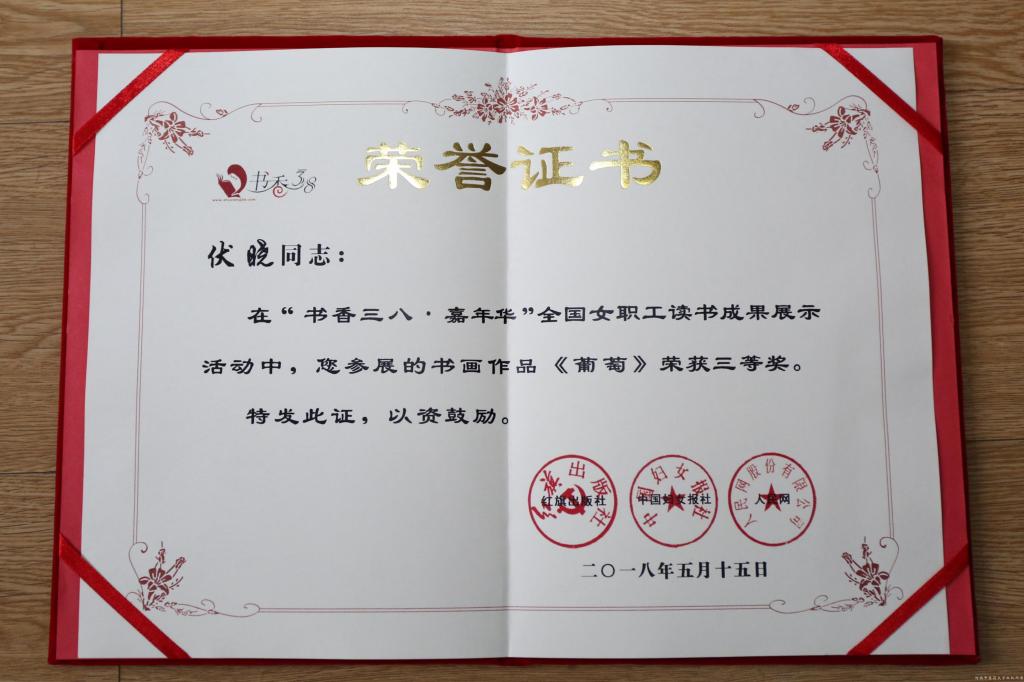 荣誉证书
书香38
伏晓同志：
在“书香三八·嘉年华”全国女职工读书成果展示
活动中，您参展的书画作品《葡萄》荣获三等奖。
特发此证，以资鼓励。
红旗出版社
红旗出版社
中国妇女报社
中国妇女报社
人民网股份有限公司
人民网
二〇一八年五月十五日